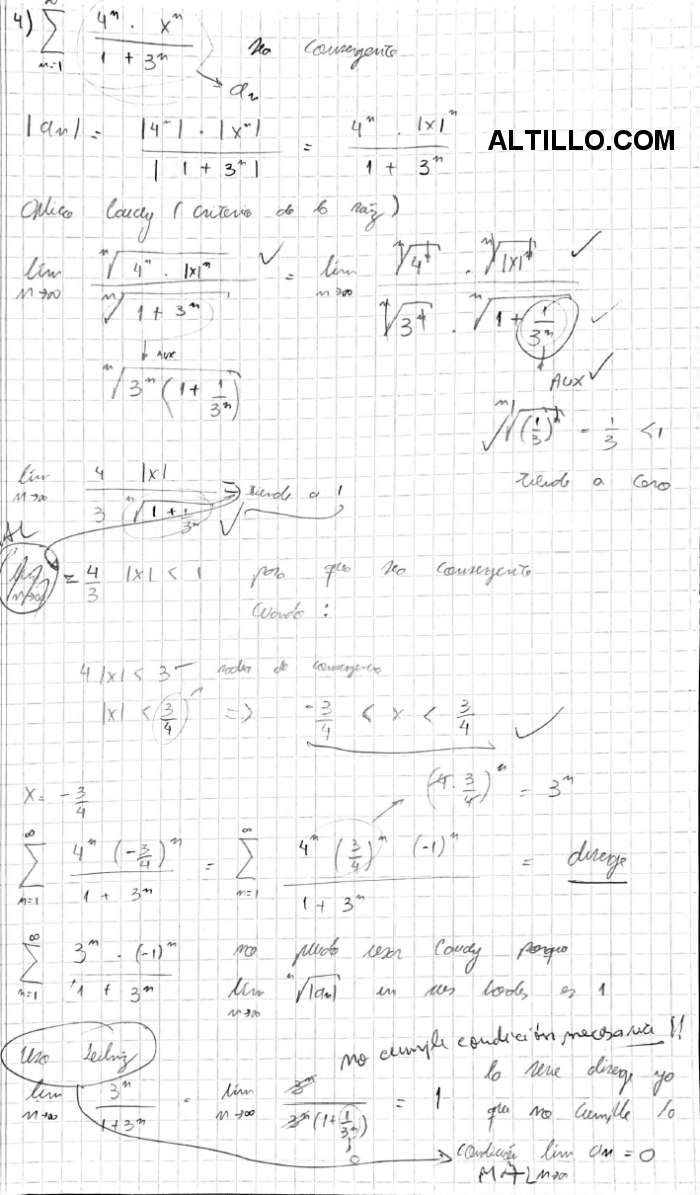 4) ∞ ∑ n=1 4ⁿ · xⁿ / 1 + 3ⁿ sea convergente
aₙ
|aₙ| = |4ⁿ| · |xⁿ| / |1 + 3ⁿ| = 4ⁿ · |x|ⁿ / 1 + 3ⁿ
ALTILLO.COM
Aplico Cauchy (criterio de la raíz)
lím n→∞ ⁿ√4ⁿ · |x|ⁿ / ⁿ√1 + 3ⁿ ✓ = lím n→∞ ⁿ√4ⁿ · ⁿ√|x|ⁿ / ⁿ√3ⁿ · ⁿ√1 + 1/3ⁿ ✓ ✓
↓ AUX
ⁿ√3ⁿ (1 + 1/3ⁿ)
AUX ✓
ⁿ√(1/3)ⁿ = 1/3 < 1
tiende a cero
lím n→∞ 4 |x| / 3 ⁿ√1 + 1/3ⁿ ⇒ tiende a 1 ✓
= 4/3 |x| < 1 para que sea convergente
cuando :
4 |x| < 3 radio de convergencia
|x| < 3/4 => -3/4 < x < 3/4 ✓
x = -3/4
(4 · 3/4)ⁿ = 3ⁿ
∞ ∑ n=1 4ⁿ (-3/4)ⁿ / 1 + 3ⁿ = ∞ ∑ n=1 4ⁿ (3/4)ⁿ (-1)ⁿ / 1 + 3ⁿ = diverge
∞ ∑ n=1 3ⁿ · (-1)ⁿ / 1 + 3ⁿ no puedo usar Cauchy porque
lím n→∞ ⁿ√|aₙ| en sus bordes es 1
Uso Leibniz
no cumple condición necesaria !!
lím n→∞ 3ⁿ / 1+3ⁿ = lím n→∞ 3ⁿ / 3ⁿ(1+1/3ⁿ) = 1
0
la serie diverge ya
que no cumple la
condición lím n→∞ aₙ = 0